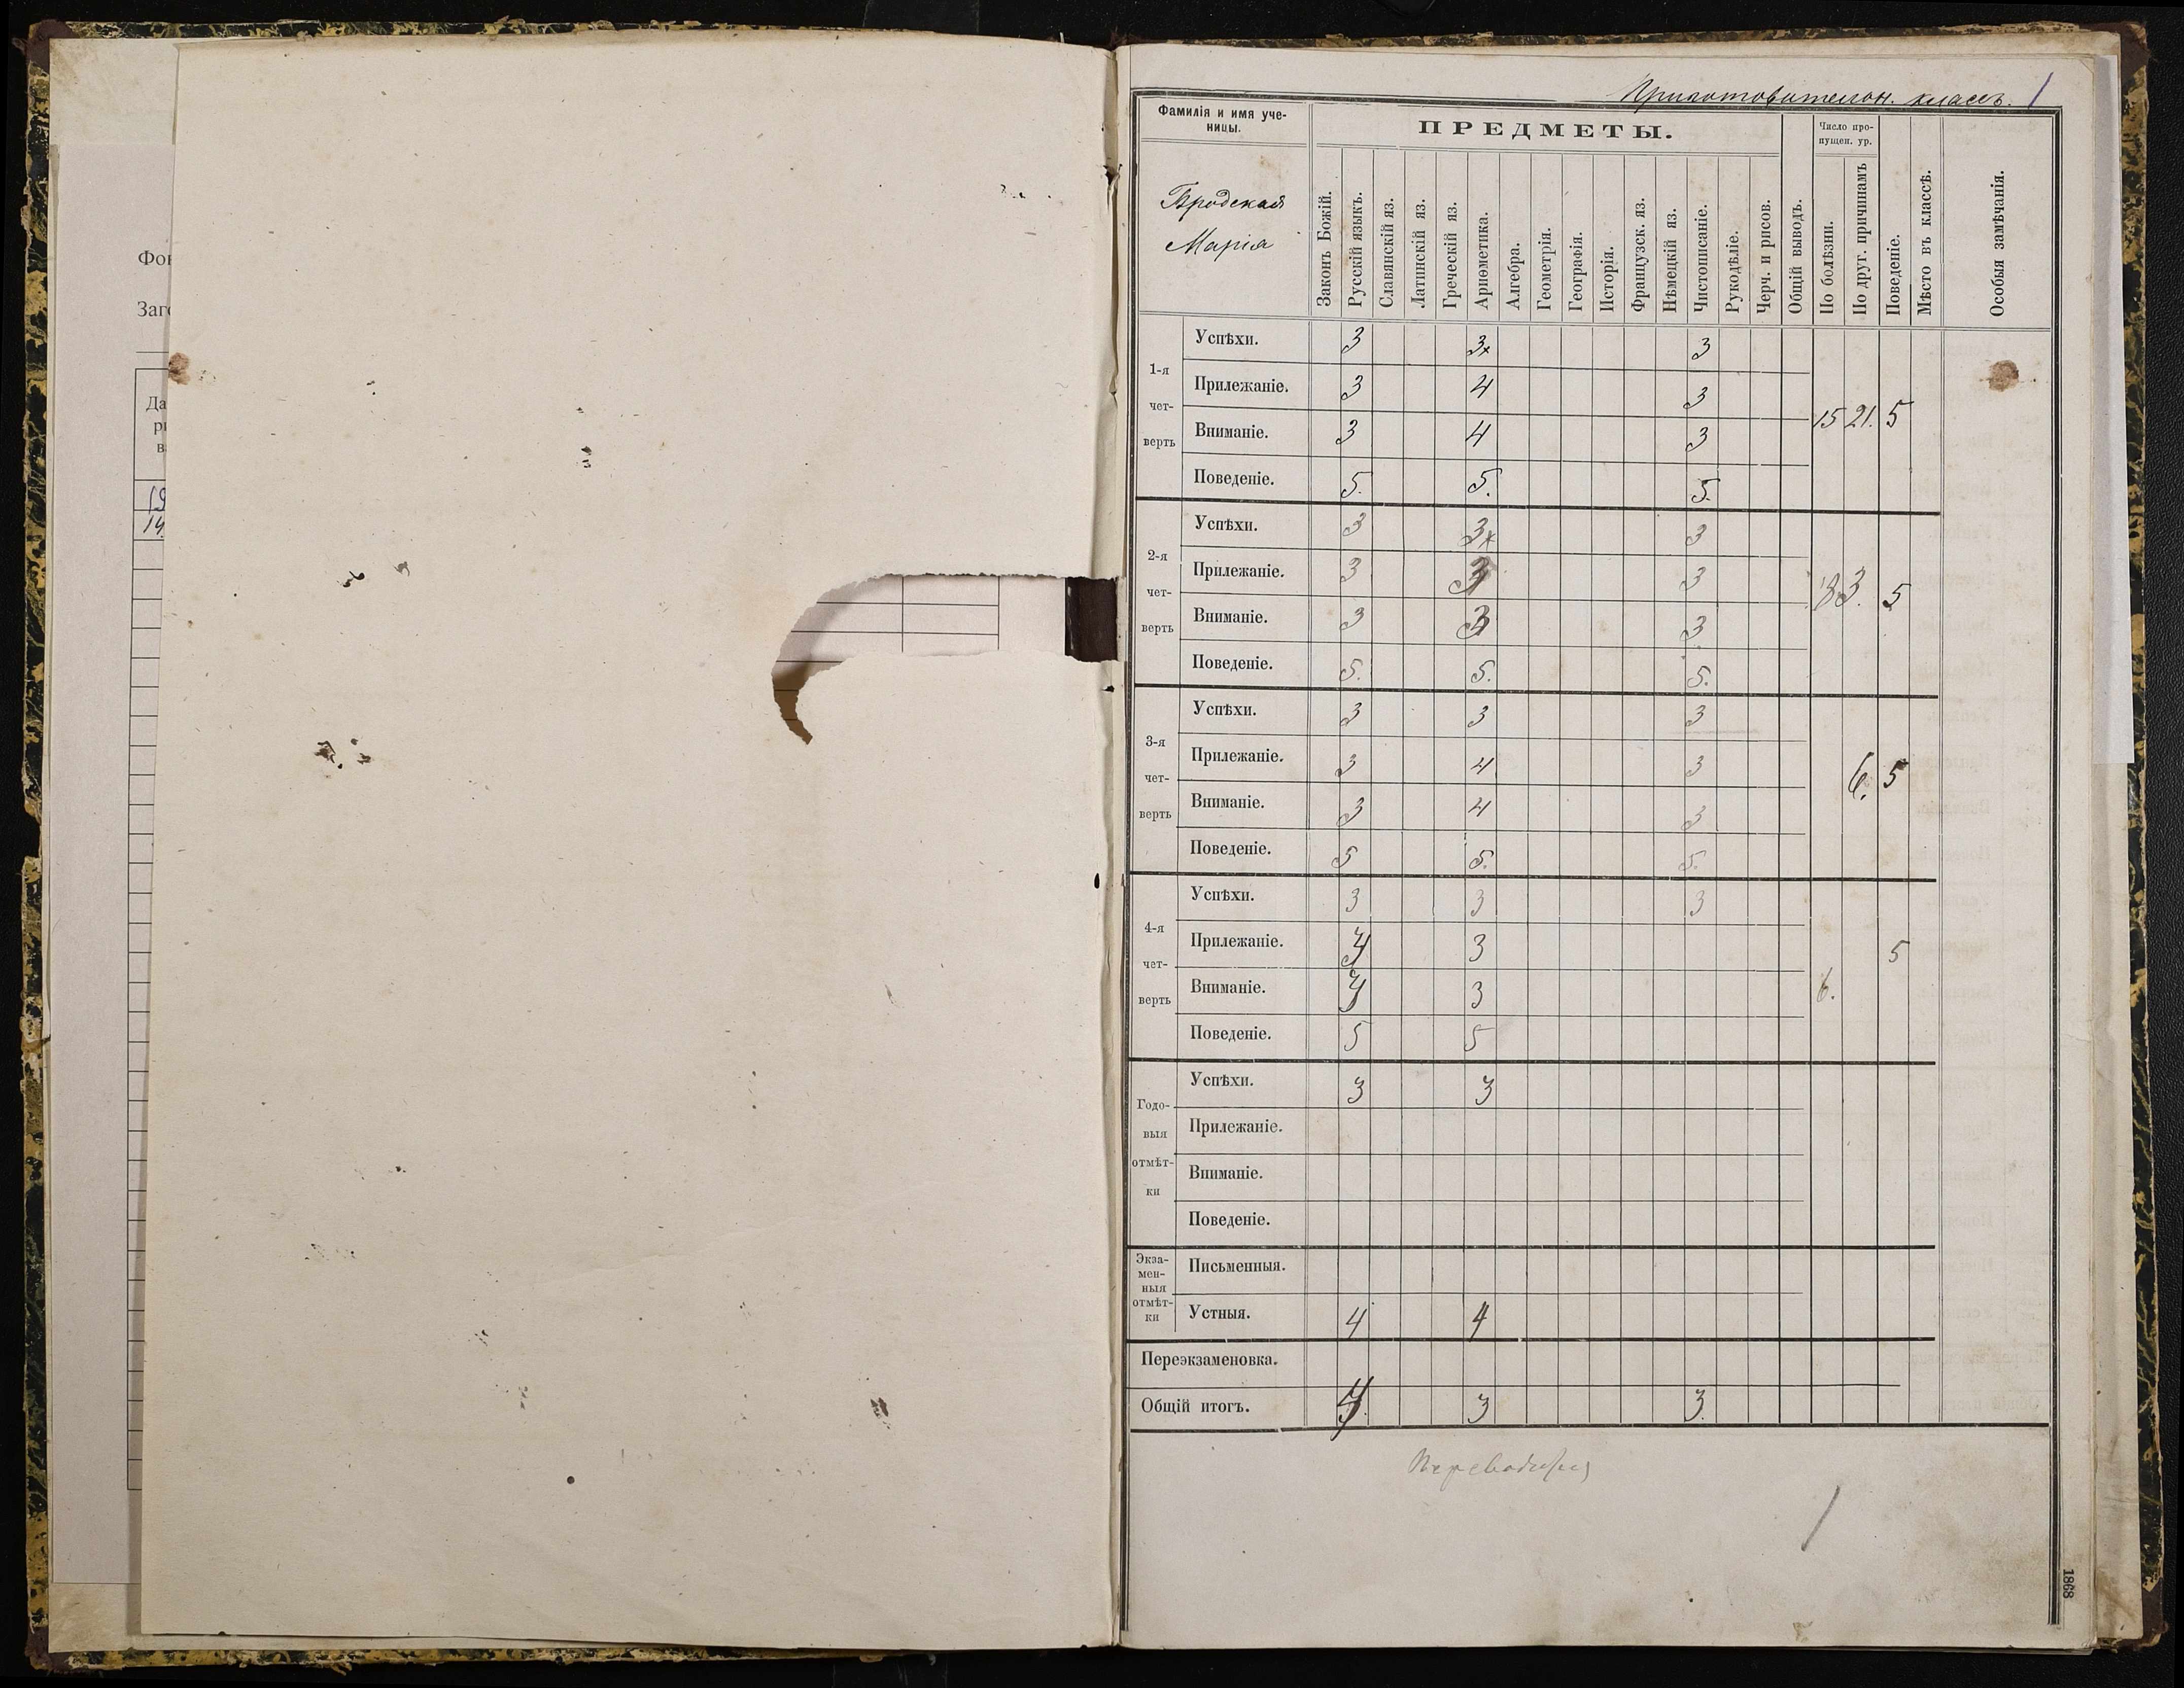 Фон
Заго
Да
ри
ва
19
14
Приготовителон. классъ. 1
Фамилія и имя уче-
ницы.
ПРЕДМЕТЫ.
Число про-
пущен. ур.
Бродская
Марія
Законъ Божій.
Русскій языкъ.
Славянскій яз.
Латинскій яз.
Греческій яз.
Ариѳметика.
Алгебра.
Геометрія.
Географія.
Исторія.
Французск. яз.
Нѣмецкій яз.
Чистописаніе.
Рукодѣліе.
Черч. и рисов.
Общій выводъ.
По болѣзни.
По друг. причинамъ
Поведеніе.
Мѣсто въ классѣ.
Особыя замѣчанія.
1-я
чет-
верть
Успѣхи. 3 3x 3
Прилежаніе. 3 4 3
Вниманіе. 3 4 3
15 21. 5
Поведеніе. 5. 5. 5.
2-я
чет-
верть
Успѣхи. 3 3x 3
Прилежаніе. 3 3 3
Вниманіе. 3 3 3
3. 5
Поведеніе. 5. 5. 5.
3-я
чет-
верть
Успѣхи. 3 3 3
Прилежаніе. 3 4 3
6. 5
Вниманіе. 3 4 3
Поведеніе. 5 5. 5.
4-я
чет-
верть
Успѣхи. 3 3 3
Прилежаніе. 3 5
Вниманіе. 3 6.
Поведеніе. 5 5
Годо-
выя
отмѣт-
ки
Успѣхи. 3 3
Прилежаніе.
Вниманіе.
Поведеніе.
Экза-
мен-
ныя
отмѣт-
ки
Письменныя.
Устныя. 4 4
Переэкзаменовка.
Общій итогъ. 3 3
1868